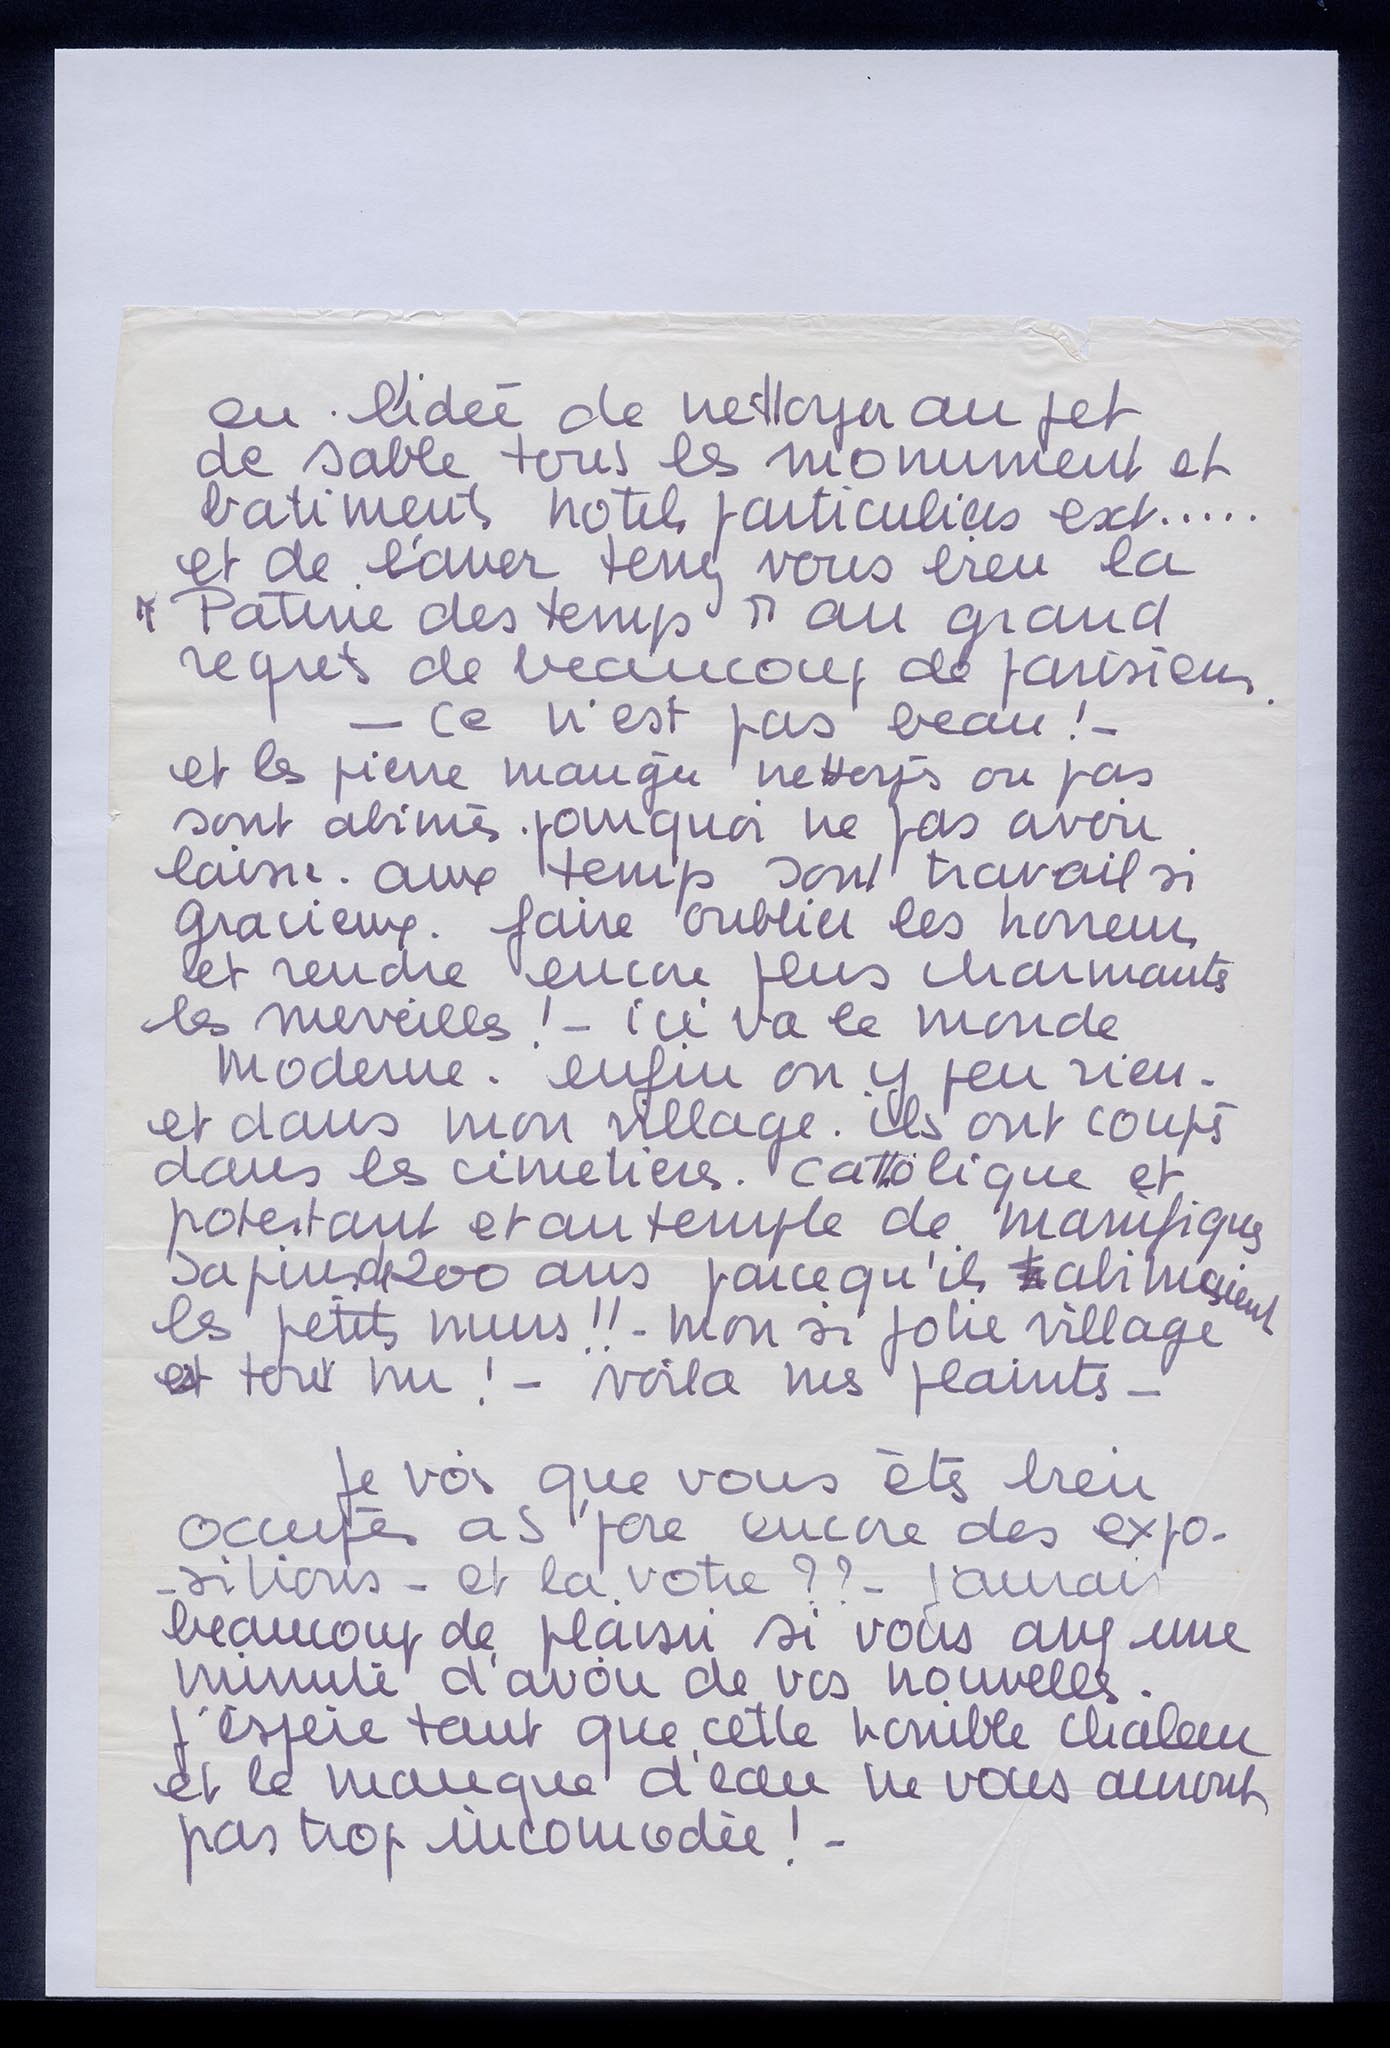 eu . l'ideé de nettoyer au jet
de sable tous les monument et
batiments hotels particuliers ext.....
et de laver tenez vous bien la
" Patine des temps " au grand
regrets de beaucoup de parisiens.
— Ce n'est pas beau ! -
et les pierre mangée nettoyés ou pas
sont abimés . pourquoi ne pas avoir
laissé . aux temps sont travail si
gracieux . faire oublier les horreurs
et rendre encore plus charmants
les merveilles ! - ici va le monde
moderne . enfin on y peu rien -
et dans mon village . ils ont coupés
dans les cimetières . catholique et
potestant et au temple de manifiques
sapins de 200 ans parcequ'ils abimaient
les petits murs !! - mon si jolie village
est tout nu ! - voila mes plaints -
Je vois que vous êtes bien
occupés a S'pore encore des expo-
-sitions - et la votre ?? - J'aurais
beaucoup de plaisir si vous avez une
minute d'avoir de vos nouvelles .
J'éspère tant que cette horrible chaleur
et le manque d'eau ne vous auront
pas trop incomodée ! -